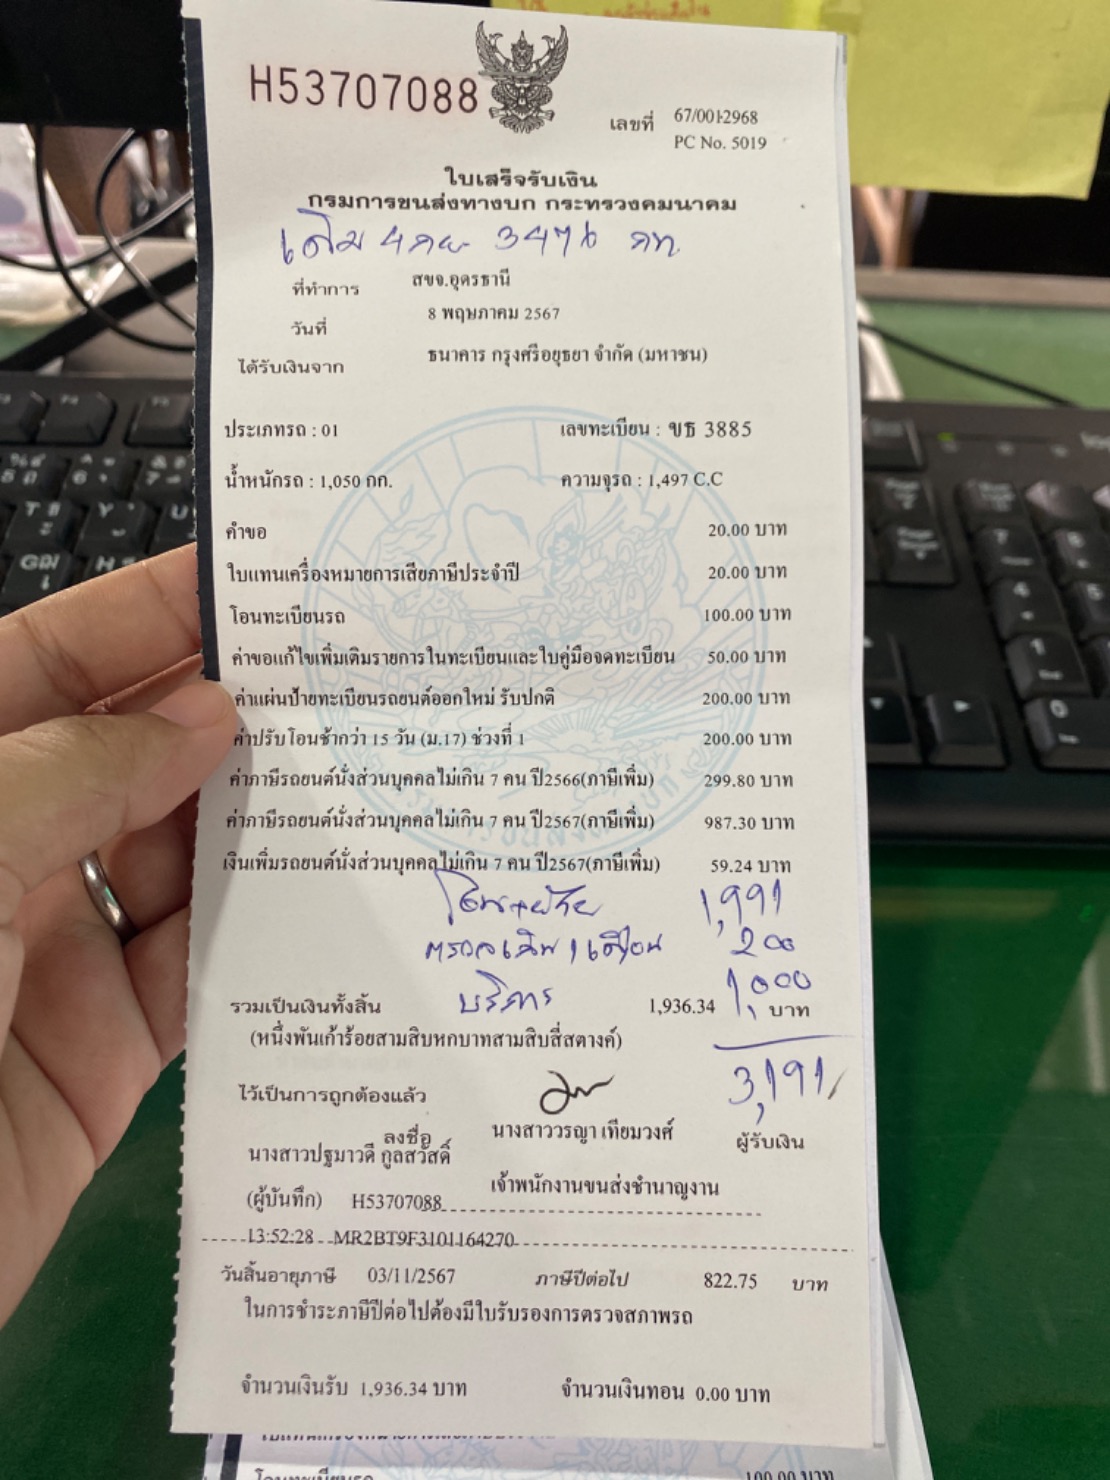 H53707088
เลขที่ 67/0012968
PC No. 5019
ใบเสร็จรับเงิน
กรมการขนส่งทางบก กระทรวงคมนาคม
เดิม 3476 กท.
ที่ทำการ สขจ.อุดรธานี
วันที่ 8 พฤษภาคม 2567
ได้รับเงินจาก ธนาคาร กรุงศรีอยุธยา จำกัด (มหาชน)
ประเภทรถ : 01 เลขทะเบียน : ขธ 3885
น้ำหนักรถ : 1,050 กก. ความจุรถ : 1,497 C.C
คำขอ 20.00 บาท
ใบแทนเครื่องหมายการเสียภาษีประจำปี 20.00 บาท
โอนทะเบียนรถ 100.00 บาท
ค่าขอแก้ไขเพิ่มเติมรายการในทะเบียนและใบคู่มือจดทะเบียน 50.00 บาท
ค่าแผ่นป้ายทะเบียนรถยนต์ออกใหม่ รับปกติ 200.00 บาท
ค่าปรับโอนช้ากว่า 15 วัน (ม.17) ช่วงที่ 1 200.00 บาท
ค่าภาษีรถยนต์นั่งส่วนบุคคลไม่เกิน 7 คน ปี2566(ภาษีเพิ่ม) 299.80 บาท
ค่าภาษีรถยนต์นั่งส่วนบุคคลไม่เกิน 7 คน ปี2567(ภาษีเพิ่ม) 987.30 บาท
เงินเพิ่มรถยนต์นั่งส่วนบุคคลไม่เกิน 7 คน ปี2567(ภาษีเพิ่ม) 59.24 บาท
โอน+ย้าย 1,991
200
บริการ 1,000
รวมเป็นเงินทั้งสิ้น 1,936.34 บาท
(หนึ่งพันเก้าร้อยสามสิบหกบาทสามสิบสี่สตางค์)
3,191
ไว้เป็นการถูกต้องแล้ว
ลงชื่อ นางสาววรญา เทียมวงศ์ ผู้รับเงิน
นางสาวปฐมาวดี กูลสวัสดิ์
เจ้าพนักงานขนส่งชำนาญงาน
(ผู้บันทึก) H53707088
13:52:28 MR2BT9F3101164270
วันสิ้นอายุภาษี 03/11/2567 ภาษีปีต่อไป 822.75 บาท
ในการชำระภาษีปีต่อไปต้องมีใบรับรองการตรวจสภาพรถ
จำนวนเงินรับ 1,936.34 บาท จำนวนเงินทอน 0.00 บาท
โอนทะเบียนรถ 100.00 บาท